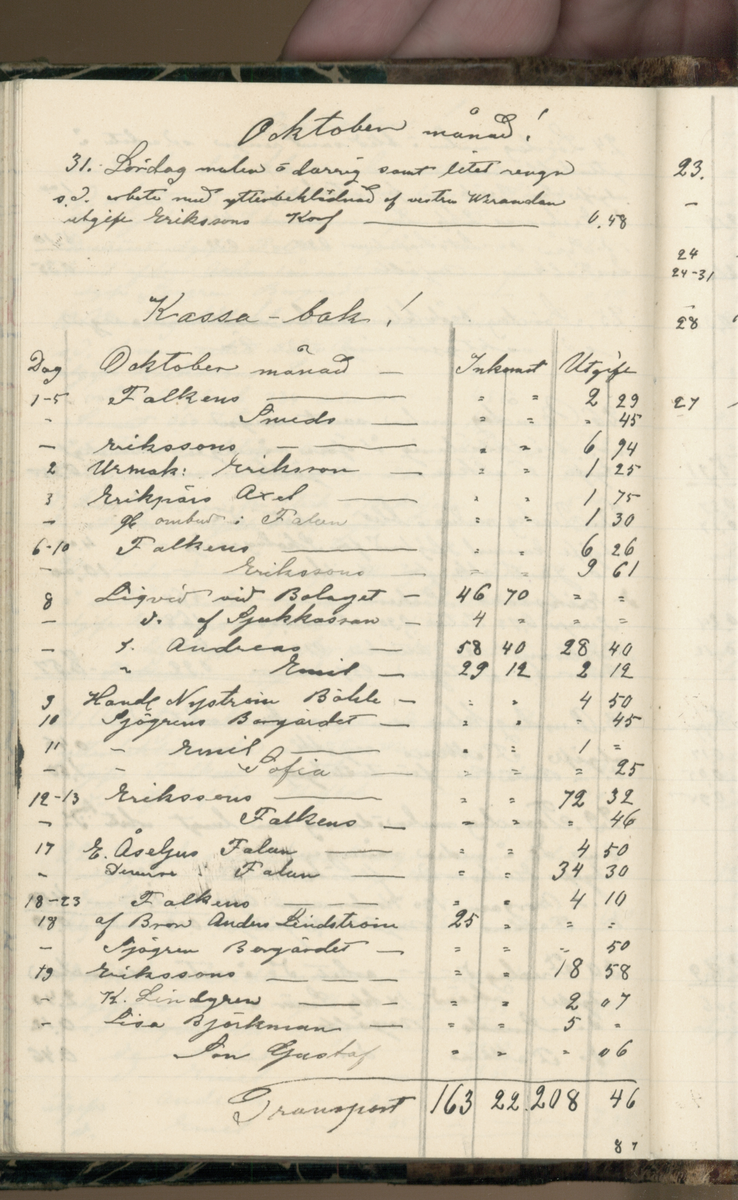 Ocktober månad!
31. Lördag mulen o darrig samt litet rengn
s.d. arbete med ytterbeklädnad af vestra Werandan
utgift Erikssons Korf — 0,48
Kassa-bok!
Dag Ocktober månad — Inkomst Utgift
1-5 Falkens — " " 2 29
" Smeds — " " " 45
— Erikssons — " " 6 94
2 Urmak: Eriksson — " " 1 25
3 Erikpärs Axel — " " 1 75
— ombud i Falun " " 1 30
6-10 Falkens — " " 6 26
— Erikssons — " " 9 61
8 Liqvid vid Bolaget — 46 70 " "
— d. af Sjukkassan — 4 " " "
— s. Andreas — 58 40 28 40
" Emil — 29 12 2 12
9 Handl Nyström Bäkle — " " 4 50
10 Sjögrens Borgärdet — " " " 45
11 " Emil — " " 1 "
— " Sofia — " " " 25
12-13 Erikssons — " " 72 32
" Falkens — " " " 46
17 E. Åselius Falun — " " 4 50
" : Falun — " " 34 30
18-23 Falkens — " " 4 10
18 af Bron Anders Lindström 25 " " "
— Sjögren Borgärdet — " " " 50
19 Erikssons — " " 18 58
— K. Lindgren — " " 2 07
— Lisa Björkman — " " 5 "
Son Gustaf " " " 06
Transport 163 22 208 46
87
23.
—
24
24-31
—
28
27